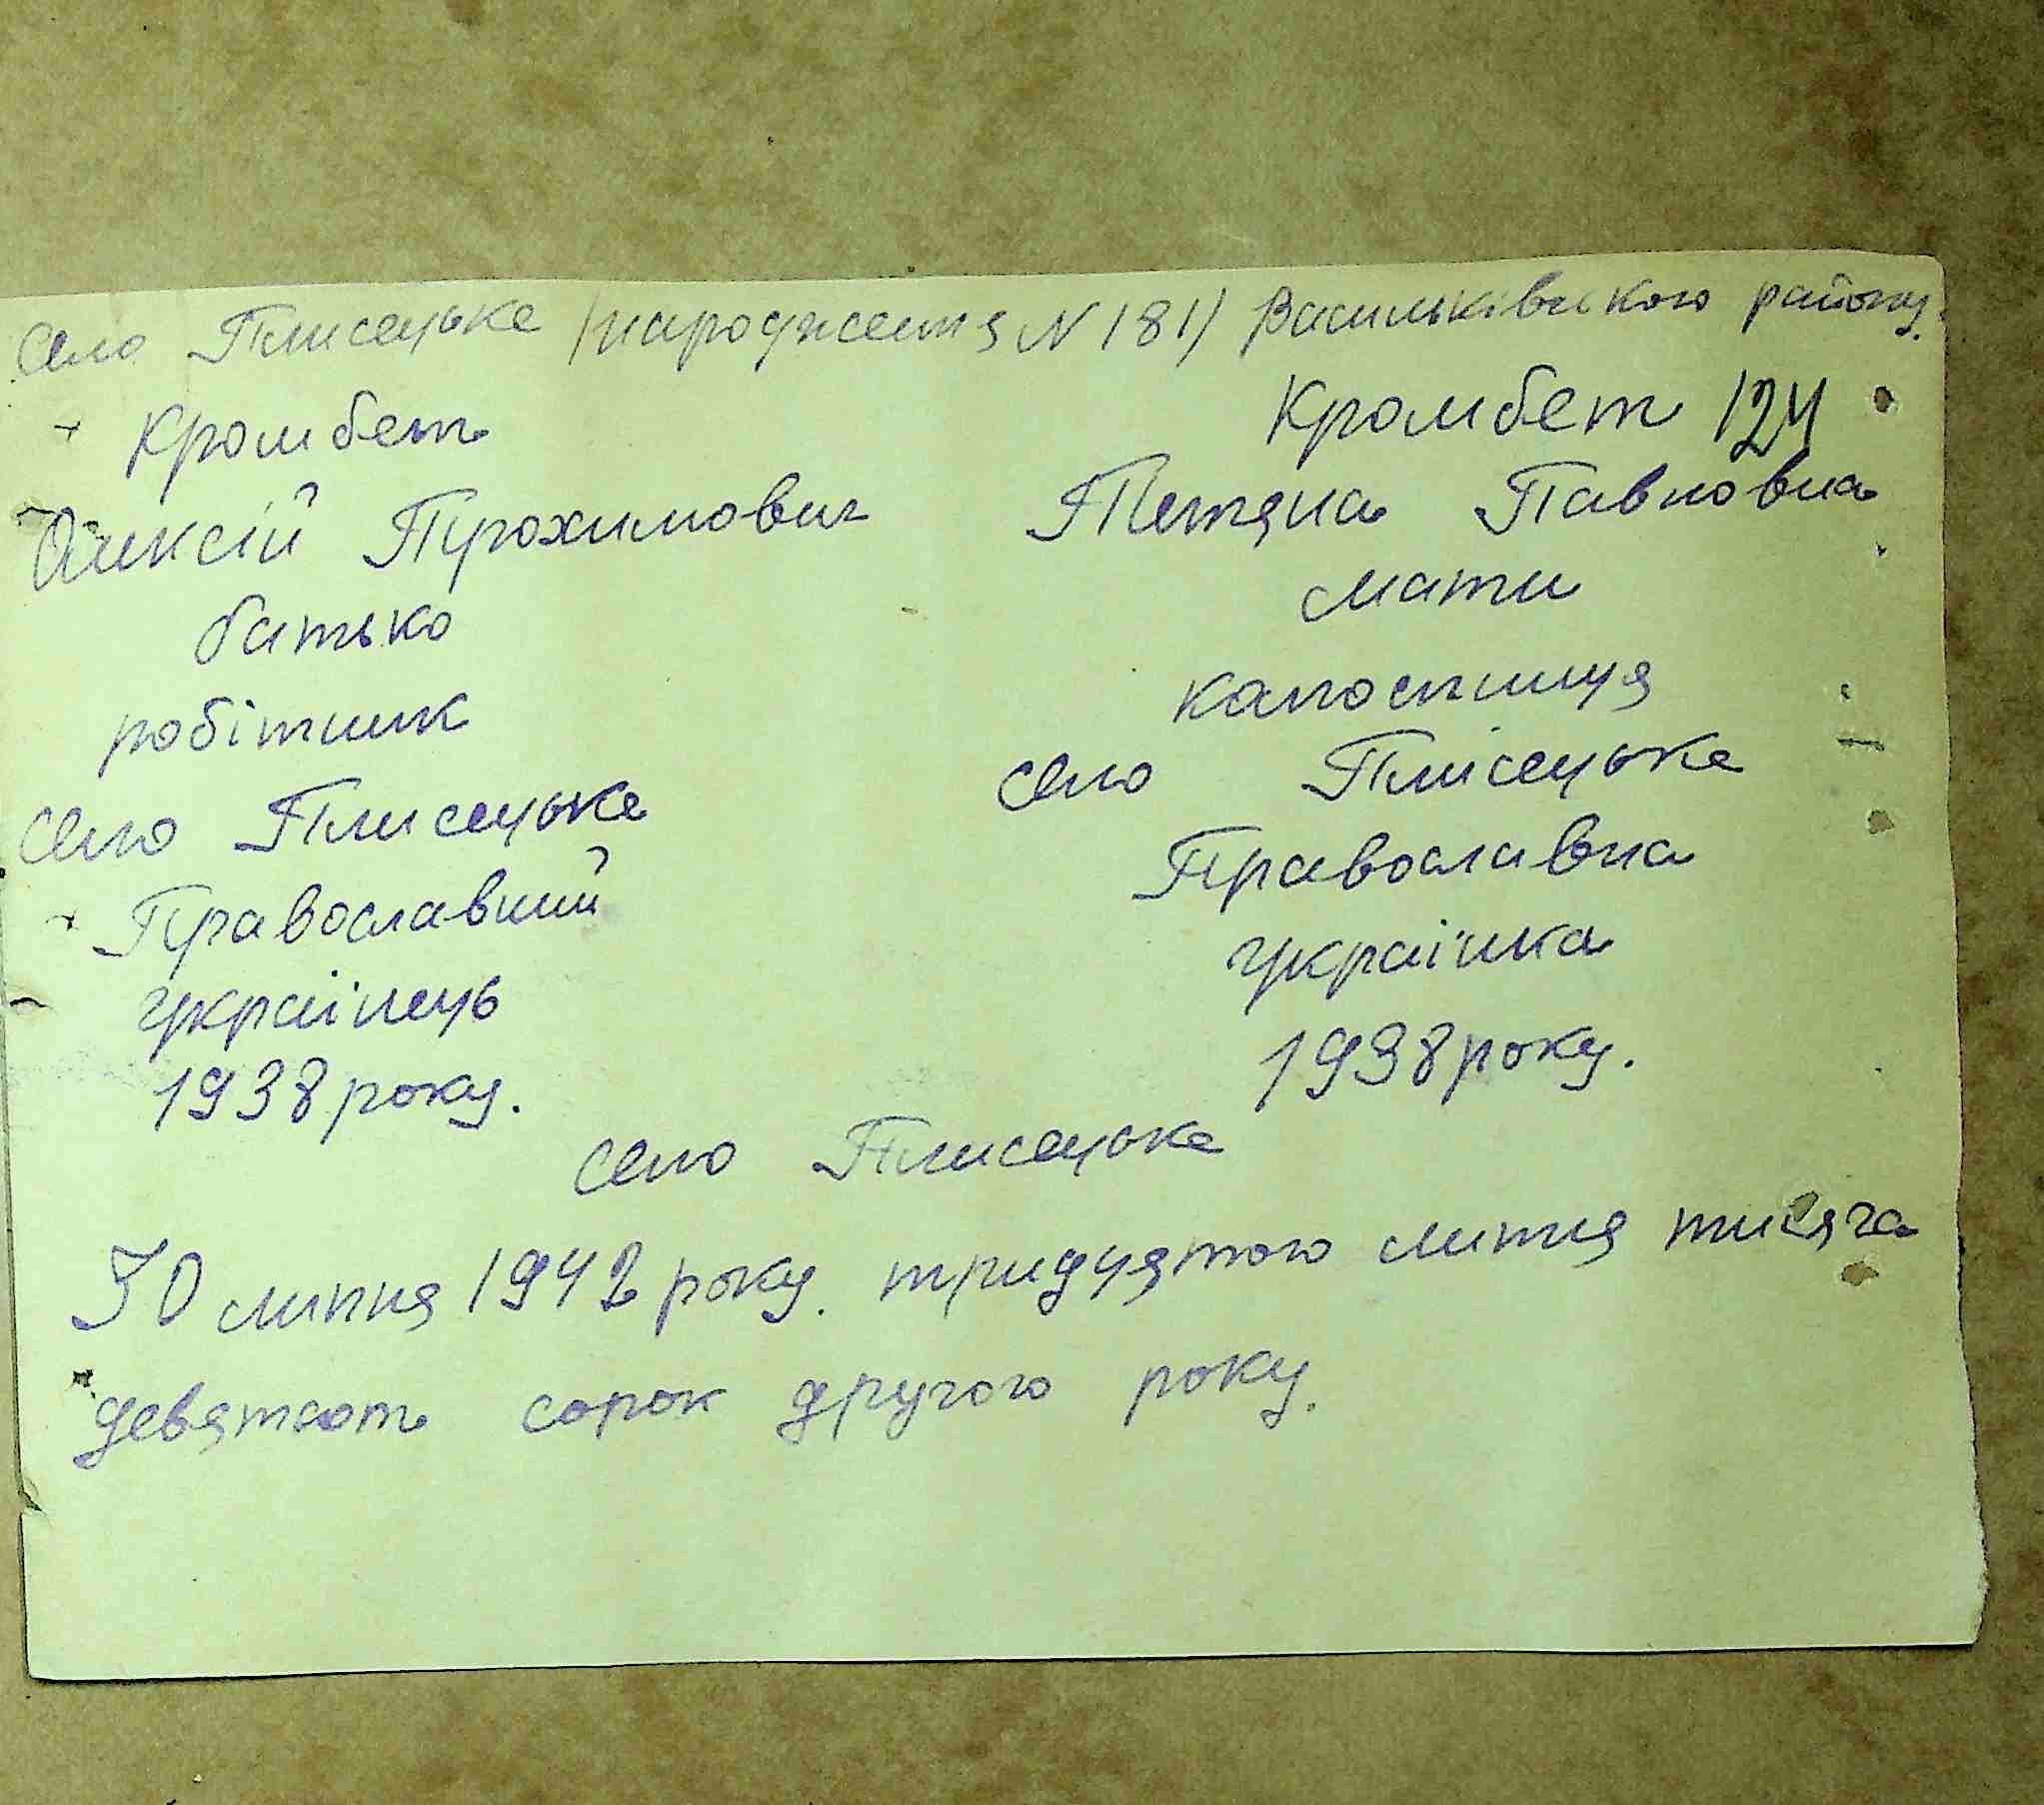 село Плисецьке /народження N 181/ Васильківського району.
Кромбет
Олексій Прохимович
батько
робітник
село Плисецьке
Православний
українець
1938 року.
Кромбет 124
Тетяна Павловна
мати
колоспниця
село Плісецьке
Православна
українка
1938 року.
село Плисецьке
30 липня 1942 року. тридцятого липня тисяча
девятсот сорок другого року.